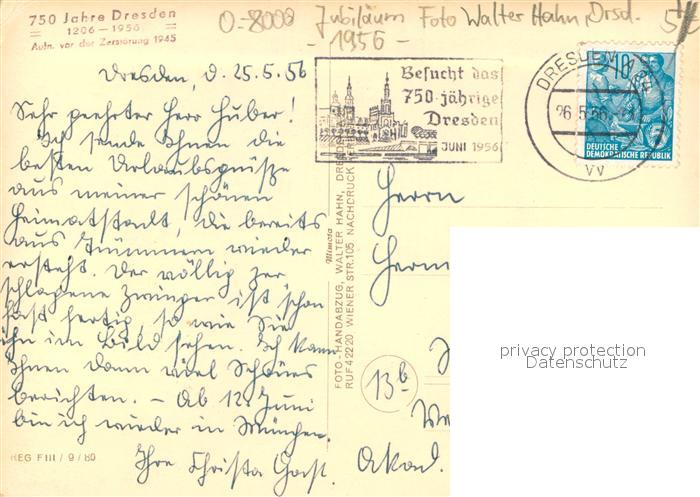 750 Jahre Dresden
= 1206 — 1956 =
Aufn. vor der Zerstörung 1945
O-8000 Jubiläum Foto Walter Hahn, Drsd.
- 1956 -
Dresden, d. 25.5.56
Besucht das
750-jährige
Dresden
JUNI 1956
DRESDEN
26.5.56
vv
10
DEUTSCHE
DEMOKRATISCHE REPUBLIK
Sehr geehrter Herr Huber!
Ich sende Ihnen die
besten Urlaubsgrüße
aus meiner schönen
Heimatstadt, die bereits
aus Trümmern wieder
ersteht. Der völlig zer
schlagene Zwinger ist schon
fast fertig, so wie Sie
ihn im Bild sehen. Ich kann
Ihnen dann viel Schönes
berichten. – Ab 12. Juni
bin ich wieder in München.
Ihre Christa
REG F III / 9 / 80
Mimosa
FOTO-HANDABZUG, WALTER HAHN, DRESDEN
RUF 42220 WIENER STR. 105 NACHDRUCK
Herrn
Herm
13b
Akad.
privacy protection
Datenschutz